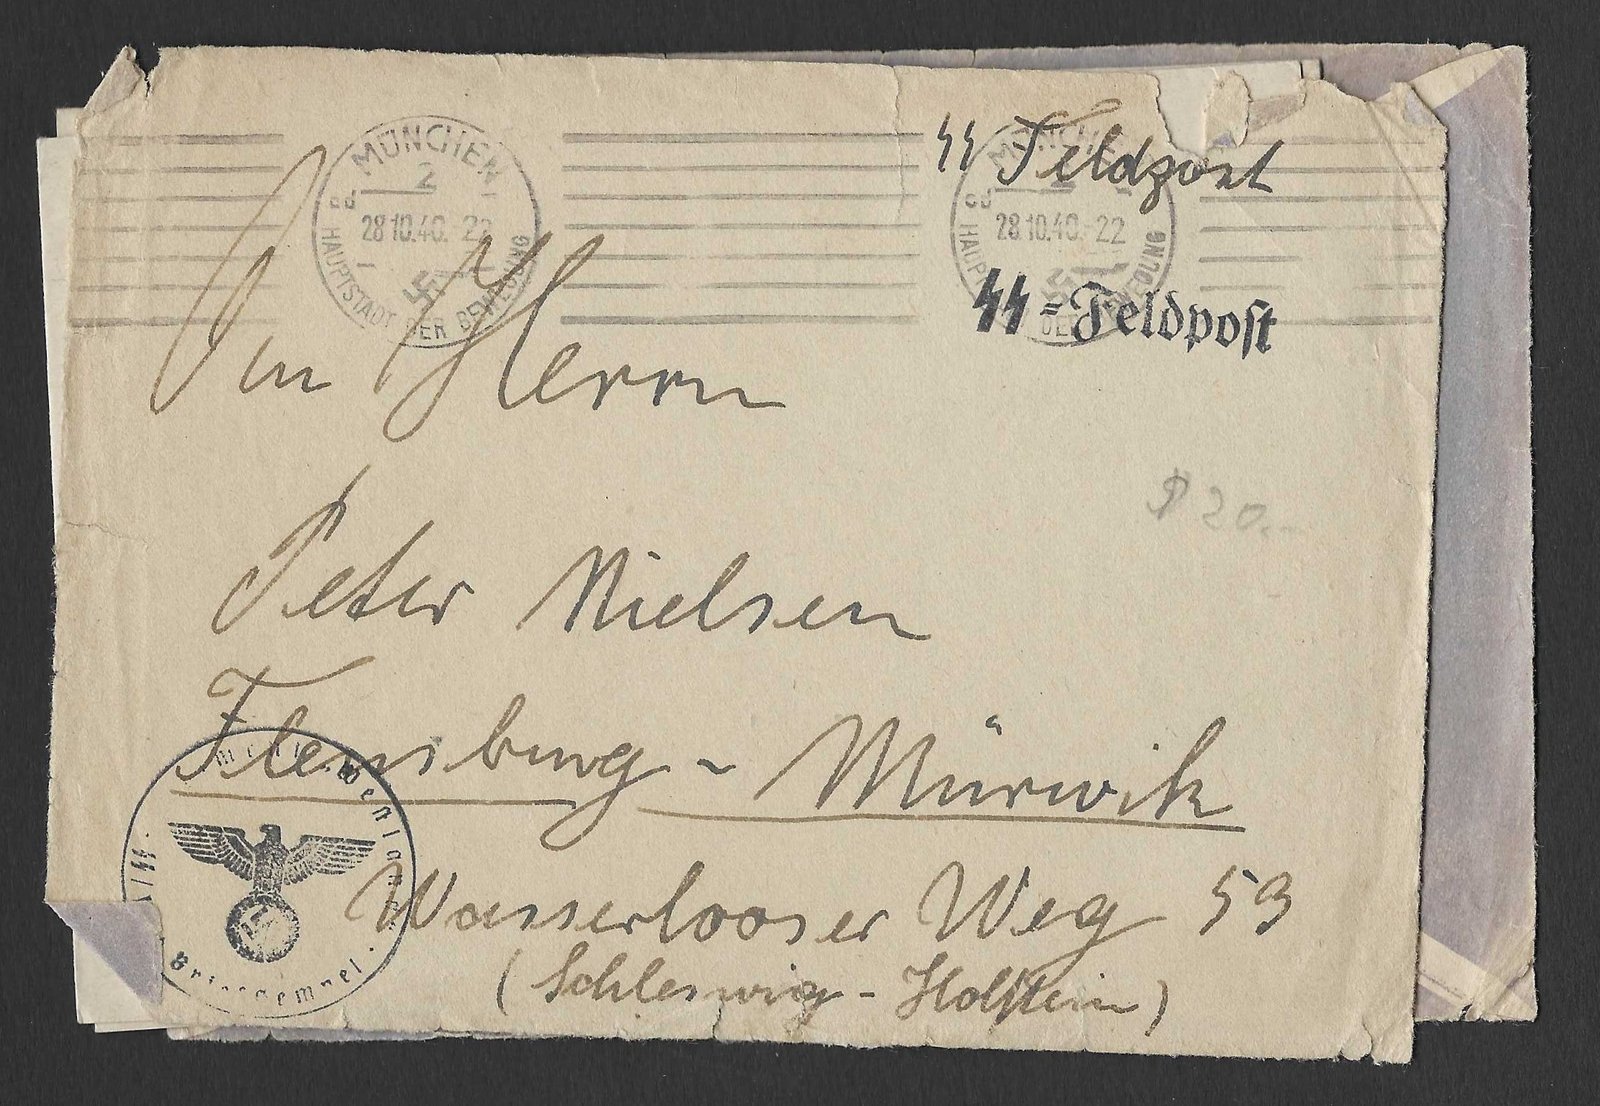 MÜNCHEN
2
28.10.40. 22
HAUPTSTADT DER BEWEGUNG
MÜNCHEN
2
28.10.40. 22
HAUPTSTADT DER BEWEGUNG
SS Feldpost
SS=Feldpost
An Herrn
$ 20.-
Peter Nielsen
Flensburg - Mürwik
Wasserlooser Weg 53
(Schleswig-Holstein)
Briefstempel